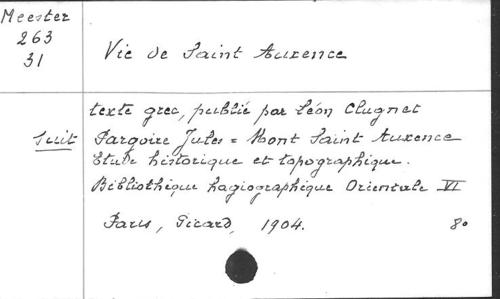 Meester
263
31
Vie de Saint Auxence
texte grec, publié par Léon Clugnet
Suit Pargoire Jules = Mont Saint Auxence
Etude historique et topographique.
Bibliothèque hagiographique Orientale VI
Paris, Picard, 1904. 8o